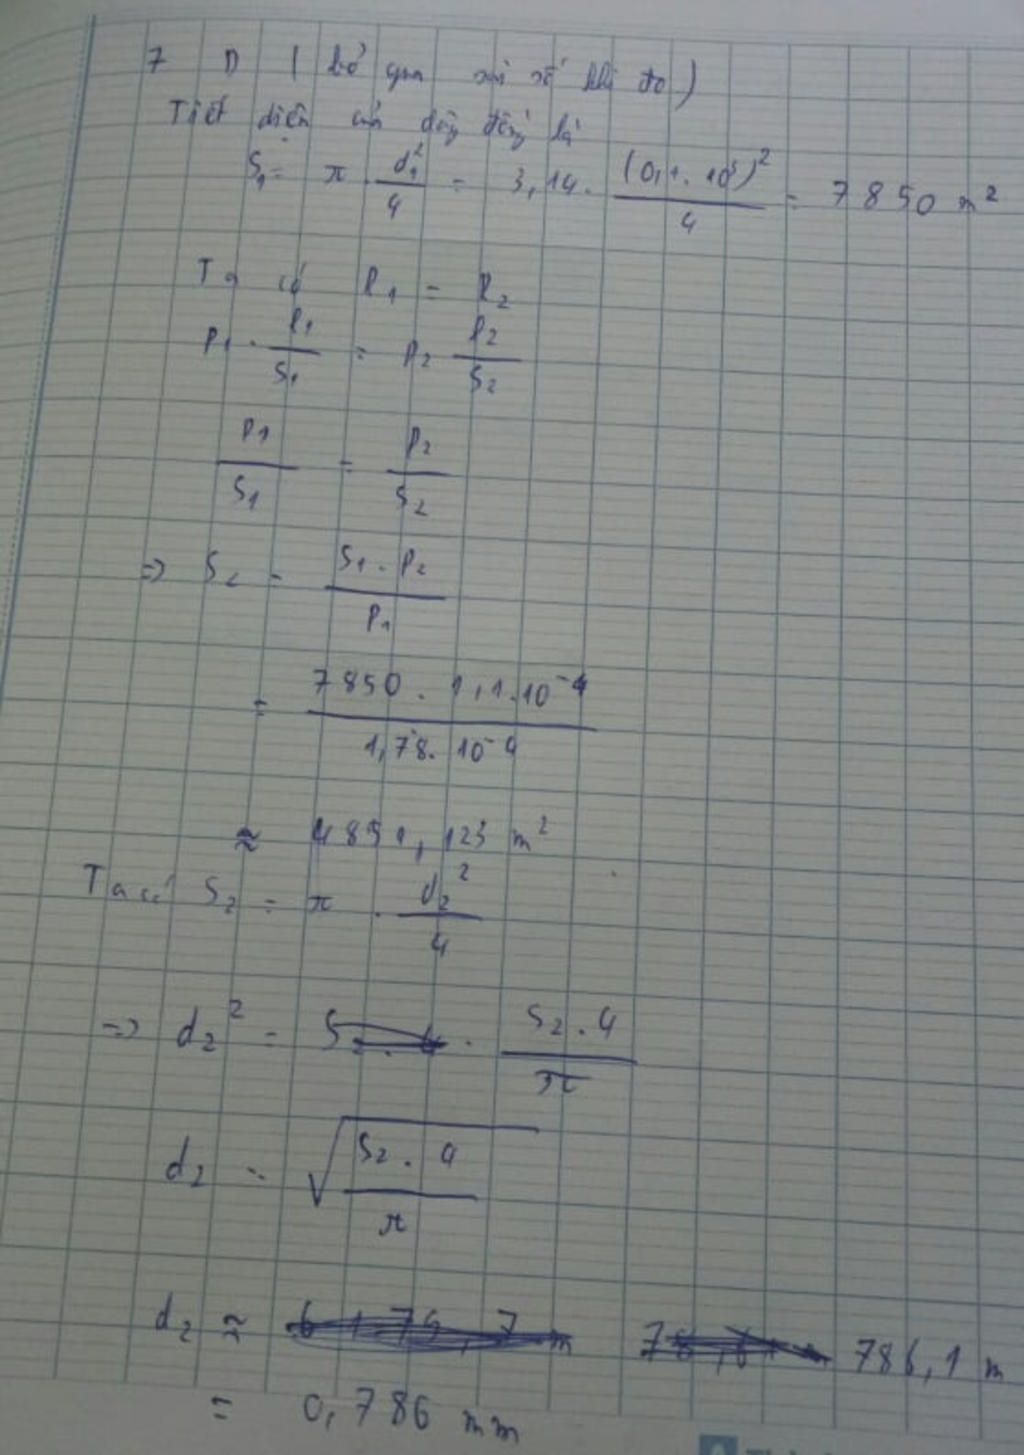 7 D ( bỏ qua sai số khi đo )
Tiết diện của dây đồng là
S₁ = π . d₁²/4 = 3,14 . (0,1 . 10⁵)²/4 = 7850 m²
Ta có R₁ = R₂
ρ₁ . l₁/S₁ = ρ₂ l₂/S₂
ρ₁/S₁ = ρ₂/S₂
=> S₂ = S₁ . ρ₂/ρ₁
= 7850 . 1,1.10⁻⁴/1,78. 10⁻⁴
≈ 4851,123 m²
Ta có S₂ = π . d₂²/4
=> d₂² = S₂ . 4/π
d₂ = √(S₂ . 4/π)
d₂ ≈ 786,1 m
= 0,786 mm